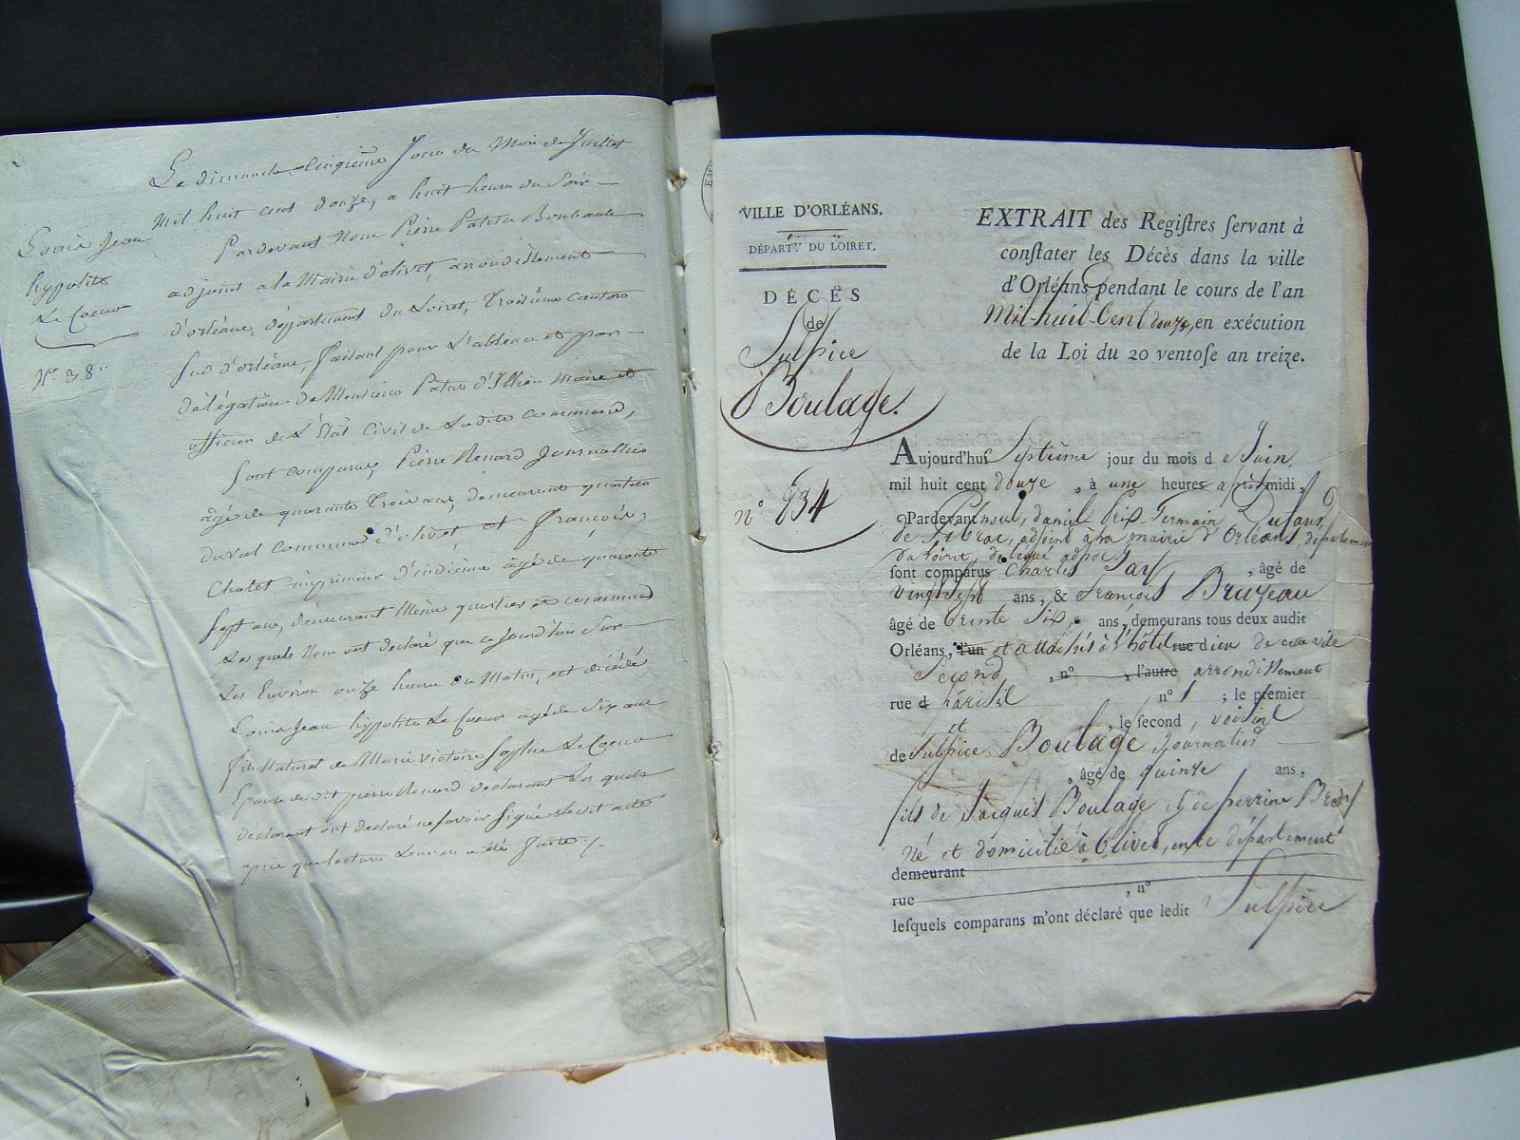 Le dimanche cinqieme Jour du Mois de Juillet
mil huit cent douze, a huit heure du Soir
Pardevant Nous Pierre Patas Bonleault
adjoint a la Mairie d'olivet, arondissement
d'orléans, département du Loiret, Troisieme canton
Sud d'orléans, faisant pour L'absence et par
délégation de Monsieur Patas d'Illiers Maire et
officier de L'état Civil de Ladite commune,
Sont comparus, Pierre Renard Journallier
âgé de quarante Trois ans, demeurant quartier
duval commune d'olivet et François
Chatet imprimeur d'indienne âgé de quarante
sept ans, demeurant Meme quartier et commune
Les quels Nous ont declaré que ce jourd'hui Sur
Les Environ onze heure du Matin, est décédé
Louis Jean hypolite Le Coeur agé de Six ans
fils Naturel de Marie victoire Sophie Le Coeur
Epouse dudit pierre Renard declarant Les quels
déclarant ont declaré ne savoir Signer Le dit acte
apres que lecture Leur en a été faite /.
Louis Jean
hypolite
Le Coeur
No. 38.
VILLE D'ORLÉANS.
DÉPART.T DU LOIRET.
DÉCÈS
de
Sulpice
Boulage.
n° 834
EXTRAIT des Regiſtres ſervant à
conſtater les Décès dans la ville
d'Orléans pendant le cours de l'an
Mil huit Cent douze, en exécution
de la Loi du 20 ventoſe an treize.
Aujourd'hui Septieme jour du mois de Juin
mil huit cent douze, à une heures après midi,
Pardevant nous, daniel Prix Germain Dufaur
de Pibrac, adjoint à la mairie d'Orléans, département
du Loiret, délégué
ſont comparus Charles Sary, âgé de
vingt Sept ans, & François Bruzeau
âgé de trente Six ans, demeurans tous deux audit
Orléans, l'un et attachés à l'hôtel rue dieu de cette ville
Second, n° , l'autre arrondissement
rue d parisil n° 1 ; le premier
et , le ſecond, voisins
de Sulpice Boulage Journalier
, âgé de quinze ans,
fils de Jacques Boulage & de perrine
Né et domicilié à Olivet, en ce département
demeurant
rue , n°
leſquels comparans m'ont déclaré que ledit Sulpice